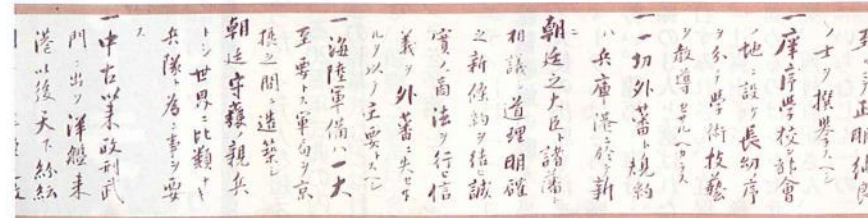 ノ士ヲ撰擧スヘシ
一庠序學校ヲ都會
ノ地ニ設ケ長幼ノ序
ヲ分チ學術技藝
ヲ教導セサルヘカラス
一一切外蕃トノ規約
ハ兵庫港ニ於テ新
ニ
朝廷之大臣ト諸藩ト
相議シ道理明確
之新條約ヲ結ヒ誠
實ノ商法ヲ行ヒ信
義ヲ外蕃ニ失セサ
ルヲ以テ主要トスヘシ
一海陸軍備ハ一大
至要トス軍局ヲ京
摂之間ニ造築シ
朝廷守護ノ親兵
トシ世界ニ比類ナキ
兵隊ト為ン事ヲ要
ス
一中古以来政刑武
門ニ出ツ洋艦来
港以後天下紛紜